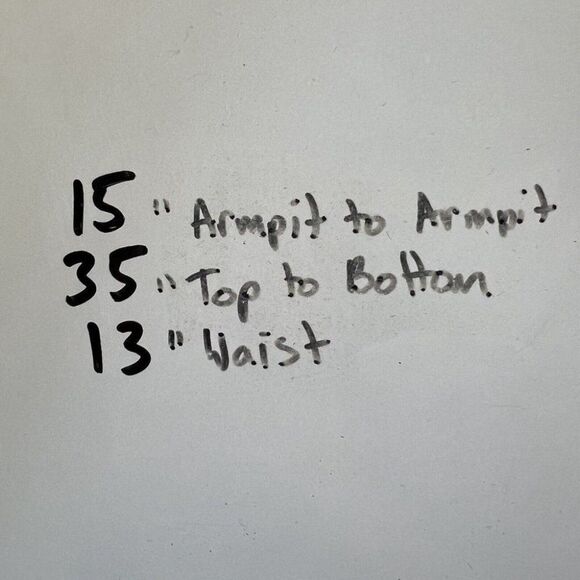 15" Armpit to Armpit
35" Top to Bottom
13" Waist